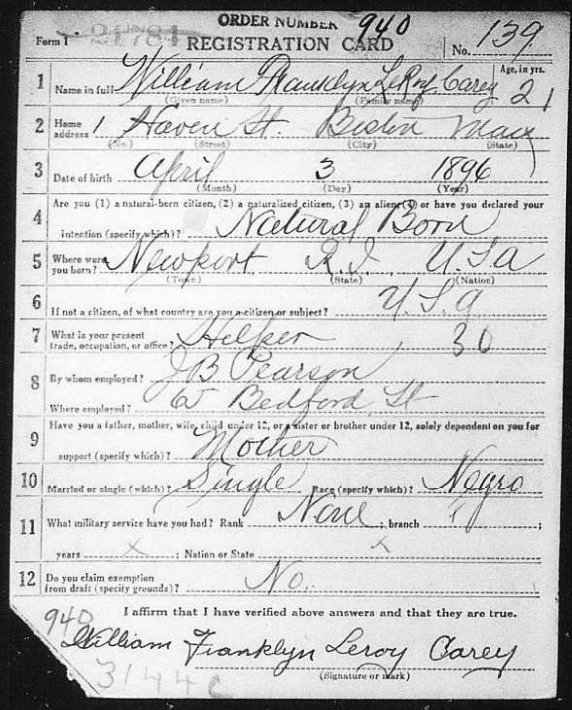 ORDER NUMBER 940
Form 1 REGISTRATION CARD No. 139
1 Name in full William Franklyn LeRoy Carey Age, in yrs. 21
(Given name) (Family name)
2 Home address 1 Haven St. Boston Mass
(No.) (Street) (City) (State)
3 Date of birth April 3 1896
(Month) (Day) (Year)
4 Are you (1) a natural-born citizen, (2) a naturalized citizen, (3) an alien, (4) or have you declared your
intention (specify which)? Natural Born
5 Where were you born? Newport R.I. U.S.A
(Town) (State) (Nation)
6 If not a citizen, of what country are you a citizen or subject? U.S.A
7 What is your present trade, occupation, or office? Helper 30
8 By whom employed? J B Pearson
Where employed? W Bedford St
9 Have you a father, mother, wife, child under 12, or a sister or brother under 12, solely dependent on you for
support (specify which)? Mother
10 Married or single (which)? Single Race (specify which)? Negro
11 What military service have you had? Rank None ; branch ;
years X ; Nation or State X
12 Do you claim exemption from draft (specify grounds)? No.
I affirm that I have verified above answers and that they are true.
940
William Franklyn Leroy Carey
(Signature or mark)
3144C